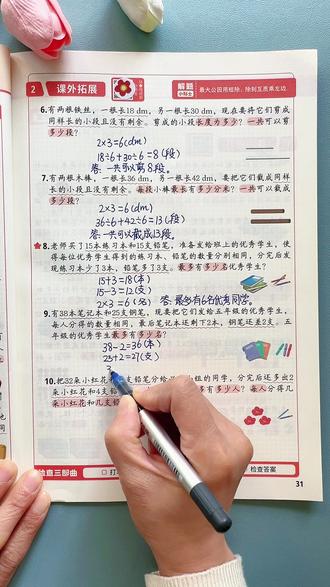 2 课外拓展
解题
小帮士
最大公因用短除，除到互质乘左边
6.有两根铁丝，一根长18 dm，另一根长30 dm，现在要将它们剪成
同样长的小段且没有剩余。剪成的小段长度为多少？一共可以剪
多少段？
2×3=6(dm)
18÷6+30÷6=8(段)
答：一共可以剪8段。
7.有两根木棒，一根长36 dm，另一根长42 dm，要把它们截成同样
长的小段且没有剩余。每段小棒最长有多少分米？一共可以截成
多少段？
2×3=6(dm)
36÷6+42÷6=13(段)
答：一共可以截成13段。
8.老师买了15本练习本和15支铅笔，准备发给班上的优秀学生，使
得每位优秀学生得到的练习本、铅笔的数量分别相同，分完后发
现练习本少了3本，铅笔多了3支。最多有多少名优秀学生？
15+3=18(本)
15-3=12(支)
2×3=6(名) 答：最多有6名优秀同学。
9.有38本笔记本和25支钢笔，现要把它们发给五年级的优秀学生，
每人分得的数量相同，最后笔记本还剩下2本，钢笔还差2支。五
年级的优秀学生最多有多少名？
38-2=36(本)
25+2=27(支)
3
10.把32朵小红花
支铅笔分给
组的同学，分完后还多出2
朵小红花和4支铅
有多少人？每人分得几
朵小红花和几支铅
检查三部曲
检查答案
31